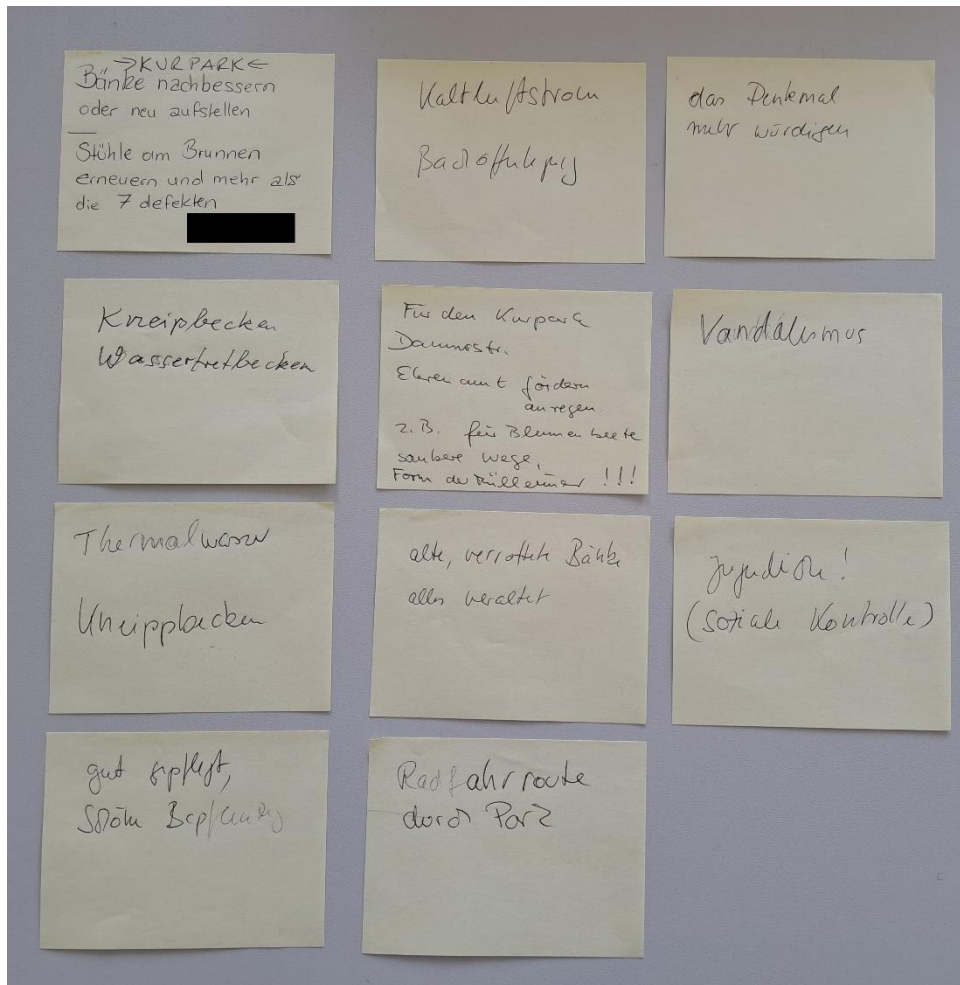 →KURPARK←
Bänke nachbessern
oder neu aufstellen
Stühle am Brunnen
erneuern und mehr als
die 7 defekten
Kaltluftstrom
Bachöffnung
das Denkmal
mehr würdigen
Kneipbecken
Wassertretbecken
Für den Kurpark
Ehrenamt fördern
anregen
z.B. für Blumenbeete
saubere Wege,
Form der Mülleimer !!!
Vandalismus
Thermalwasser
Kneippbecken
alte, verrottete Bänke
alles veraltet
Jugendliche!
(soziale Kontrolle)
gut gepflegt,
schöne Bepflanzung
Radfahrroute
durch Park